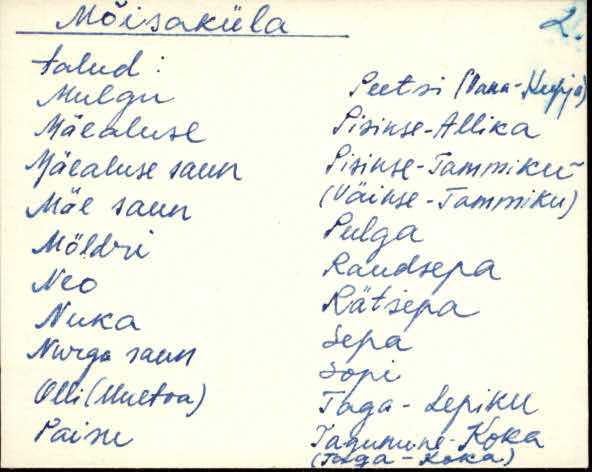 Mõisaküla
2.
talud:
Mulgu
Mäealuse
Mäealuse saun
Mäe saun
Möldri
Neo
Nuka
Nurga saun
Olli (Uuetoa)
Paisu
Peetsi (Vana-Kupja)
Pisikse-Allika
Pisikse-Tammiku
(Väikse-Tammiku)
Pulga
Raudsepa
Rätsepa
Sepa
Sopi
Taga-Lepiku
Tagumine-Koka
(Taga-Koka)